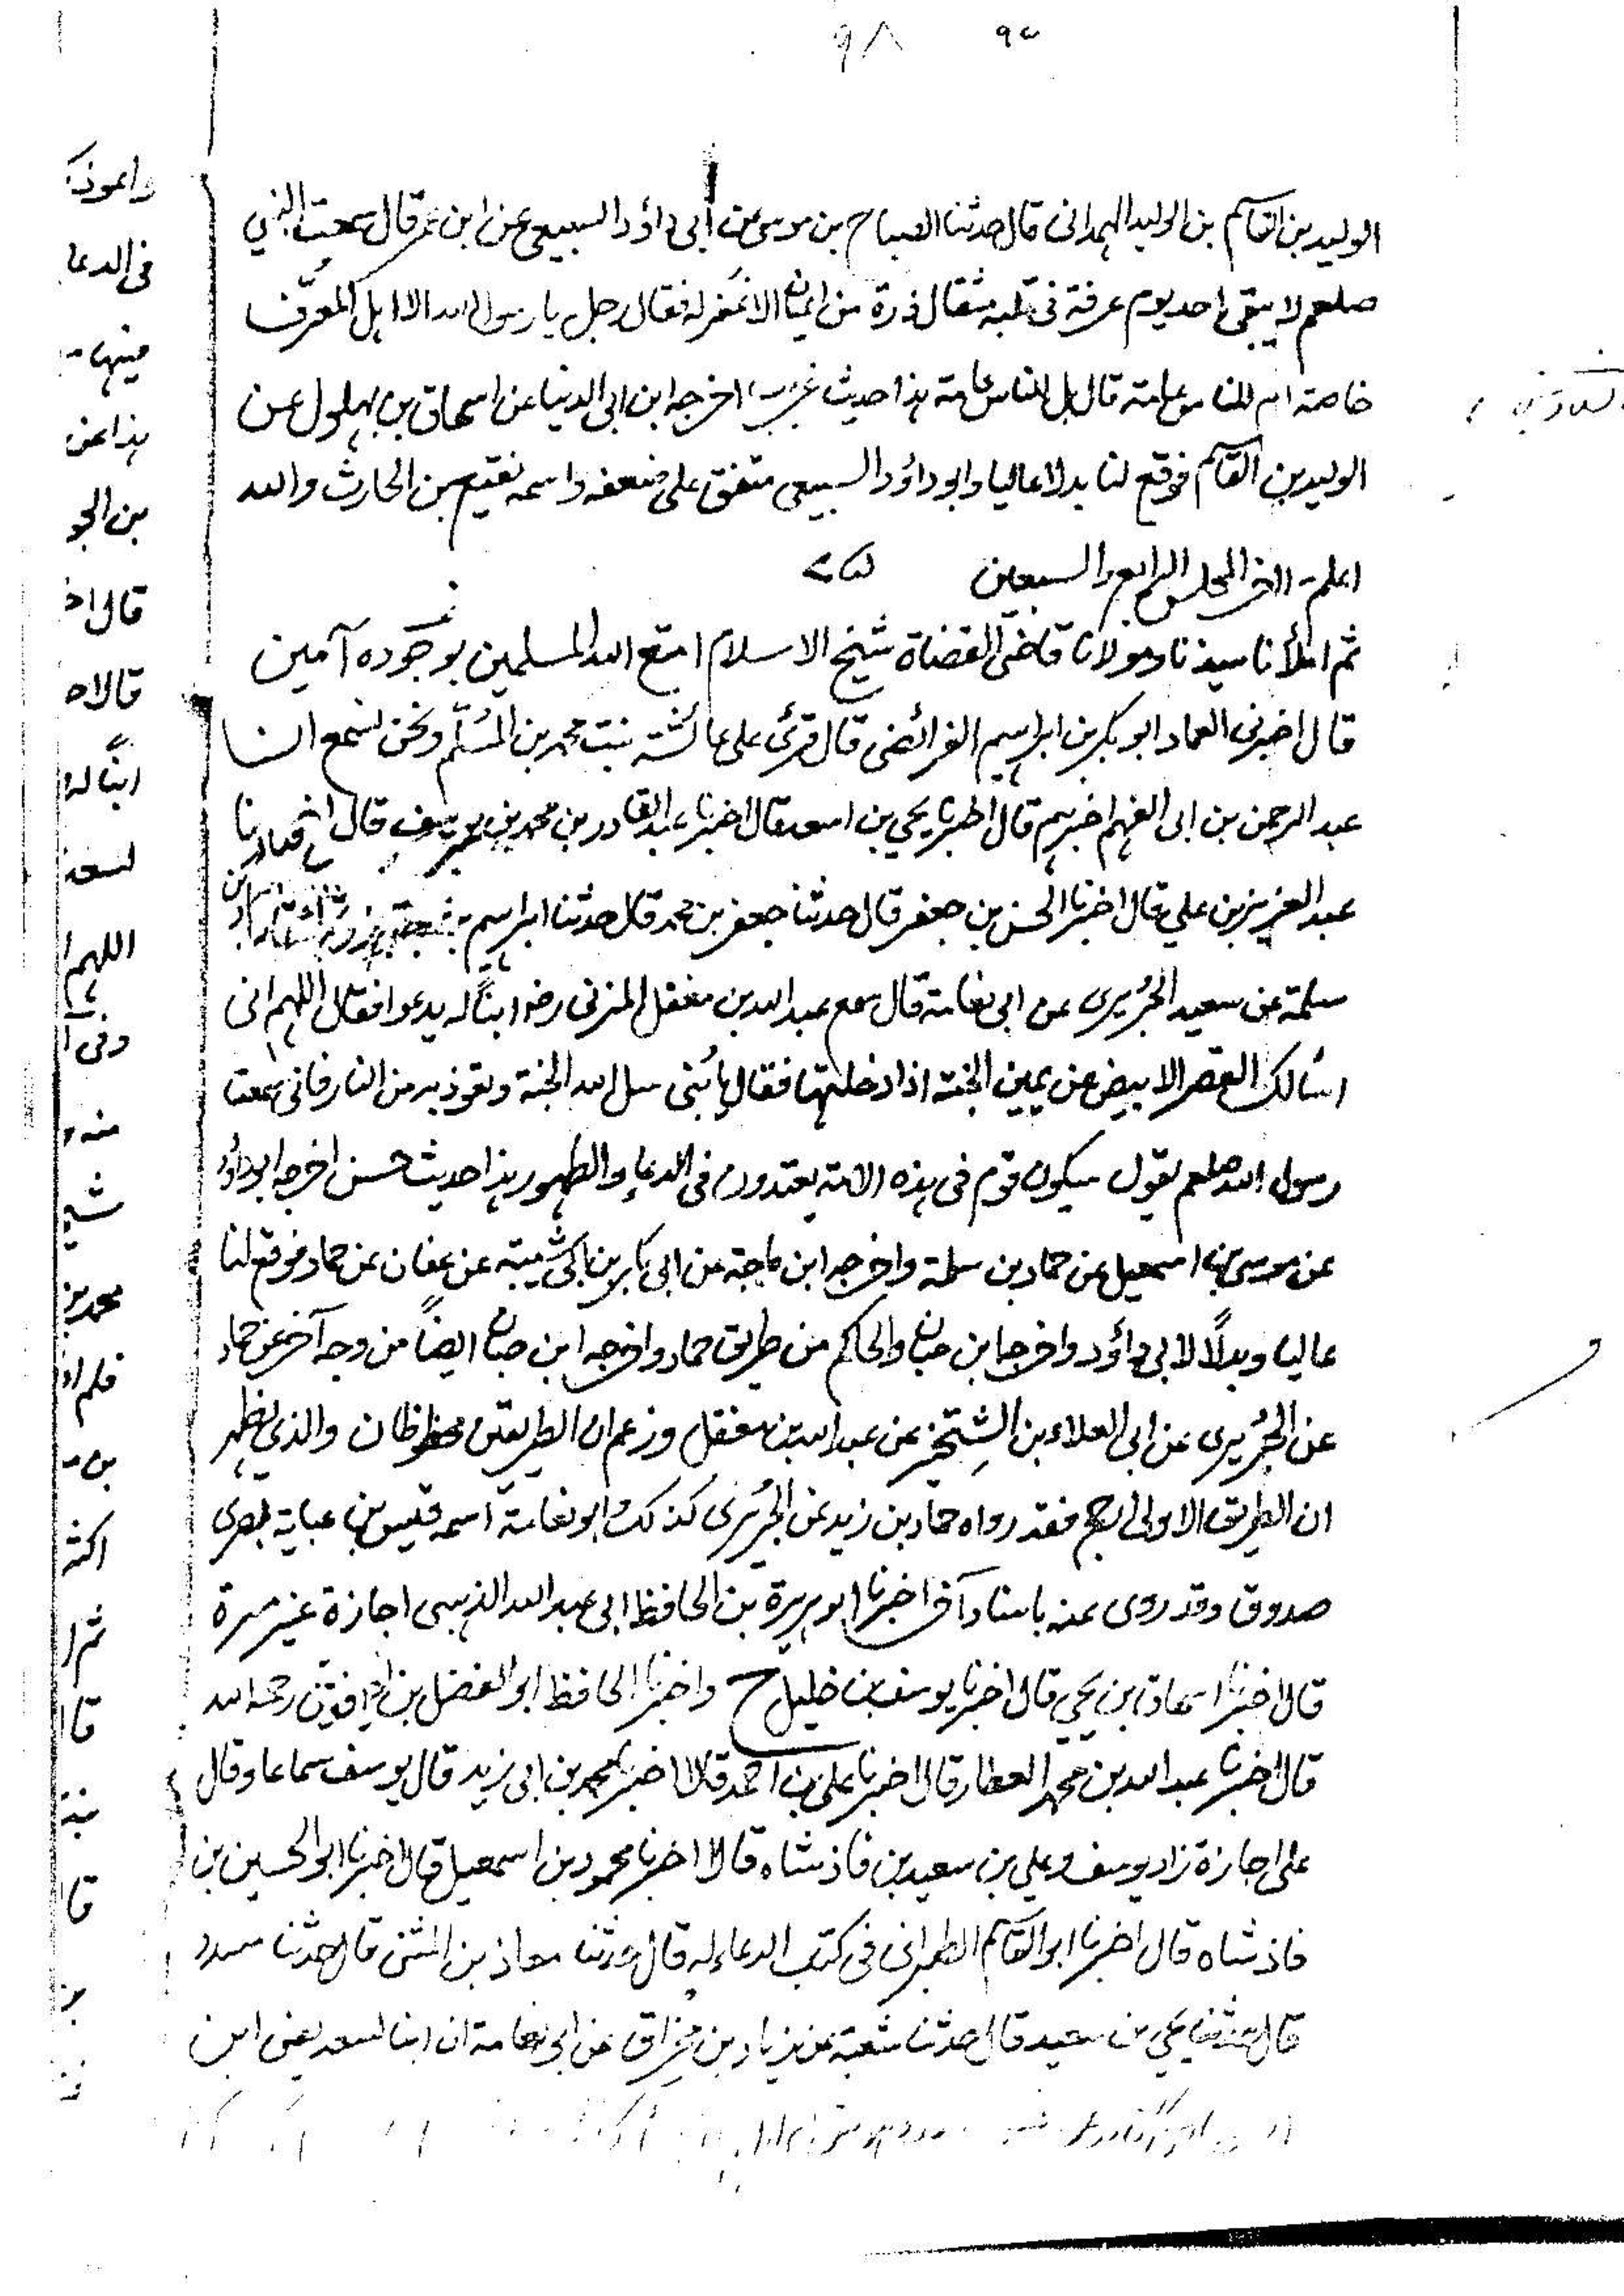 ٩٨ ٩٥
الوليد بن القاسم بن الوليد الهمدانى قال حدثنا الصباح بن موسى عن أبى داؤد السبيعى عن ابن عمر قال سمعت النبي
صلعم لا يبقى احد يوم عرفة فى قلبه مثقال ذرة من ايمان الا غفر له فقال رجل يا رسول الله الا اهل المعرّف
خاصة ام للناس عامة قال بل للناس عامة هذا حديث غريب اخرجه ابن ابى الدنيا عن اسحاق بن بهلول عن
الوليد بن القاسم فوقع لنا بدلا عاليا وابو داؤد السبيعى متفق على ضعفه واسمه نفيع بن الحارث والله
اعلم آخر المجلس الرابع والسبعين
ثم املأنا سيدنا ومولانا قاضى القضاة شيخ الاسلام امتع الله المسلمين بوجوده آمين
قال اخبرنى العماد ابو بكر بن ابراهيم الفرائضى قال قرئ على عائشة بنت محمد بن المُسَلّم ونحن نسمع ان
عبد الرحمن بن ابى الفهم اخبرهم قال اخبرنا يحيى بن اسعد قال اخبرنا عبد القادر بن محمد بن يوسف قال
عبد العزيز بن علي قال اخبرنا الحسن بن جعفر قال حدثنا جعفر بن محمد قال حدثنا ابراهيم
سلمة عن سعيد الجُريرى عن ابى نعامة قال سمع عبد الله بن مغفل المزنى رضه ابنًا له يدعو فقال اللهم انى
اسألك القصر الابيض عن يمين الجنة اذا دخلتها فقال يا بُنى سل الله الجنة وتعوذ به من النار فانى سمعت
رسول الله صلعم يقول سيكون قوم فى هذه الامة يعتدون فى الدعاء والطهور هذا حديث حسن اخرجه ابو داؤد
عن موسى بن اسمعيل عن حماد بن سلمة واخرجه ابن ماجة عن ابى بكر بن ابى شيبة عن عفان عن حماد فوقع لنا
عاليا وبدلًا لابى داؤد واخرجه ابن حبان والحاكم من طريق حماد واخرجه ابن حبان ايضًا من وجه آخر عن حماد
عن الجُريرى عن ابى العلاء بن الشِخّير عن عبد الله بن مغفل وزعم ان الطريقين محفوظان والذى يظهر
ان الطريق الاولى ارجح فقد رواه حماد بن زيد عن الجُريرى كذلك وابو نعامة اسمه قيس بن عباية بصرى
صدوق وقد روى عنه باسناد آخر اخبرنا ابو هريرة بن الحافظ ابى عبد الله الذهبى اجازة غير مرة
قال اخبرنا اسحاق بن يحيى قال اخبرنا يوسف بن خليل ح واخبرنا الحافظ ابو الفضل بن رحمه الله
قال اخبرنا عبد الله بن محمد العطار قال اخبرنا على بن احمد قالا اخبرنا محمد بن ابى زيد قال يوسف سماعا وقال
على اجازة زاد يوسف وعلي بن سعيد بن فاذشاه قالا اخبرنا محمود بن اسمعيل قال اخبرنا ابو الحسين بن
فاذشاه قال اخبرنا ابو القاسم الطبرانى فى كتاب الدعاء له قال حدثنا معاذ بن المثنى قال حدثنا مسدد
قال حدثنا يحيى بن سعيد قال حدثنا شعبة عن زياد بن مخراق عن ابى نعامة ان ابنا لسعد يعنى ابن
فى الدعا
هذا عن
بن الجو
ابنًا له
لسعد
اللهم
منه و
محمد بن
اكثر
قا
قا